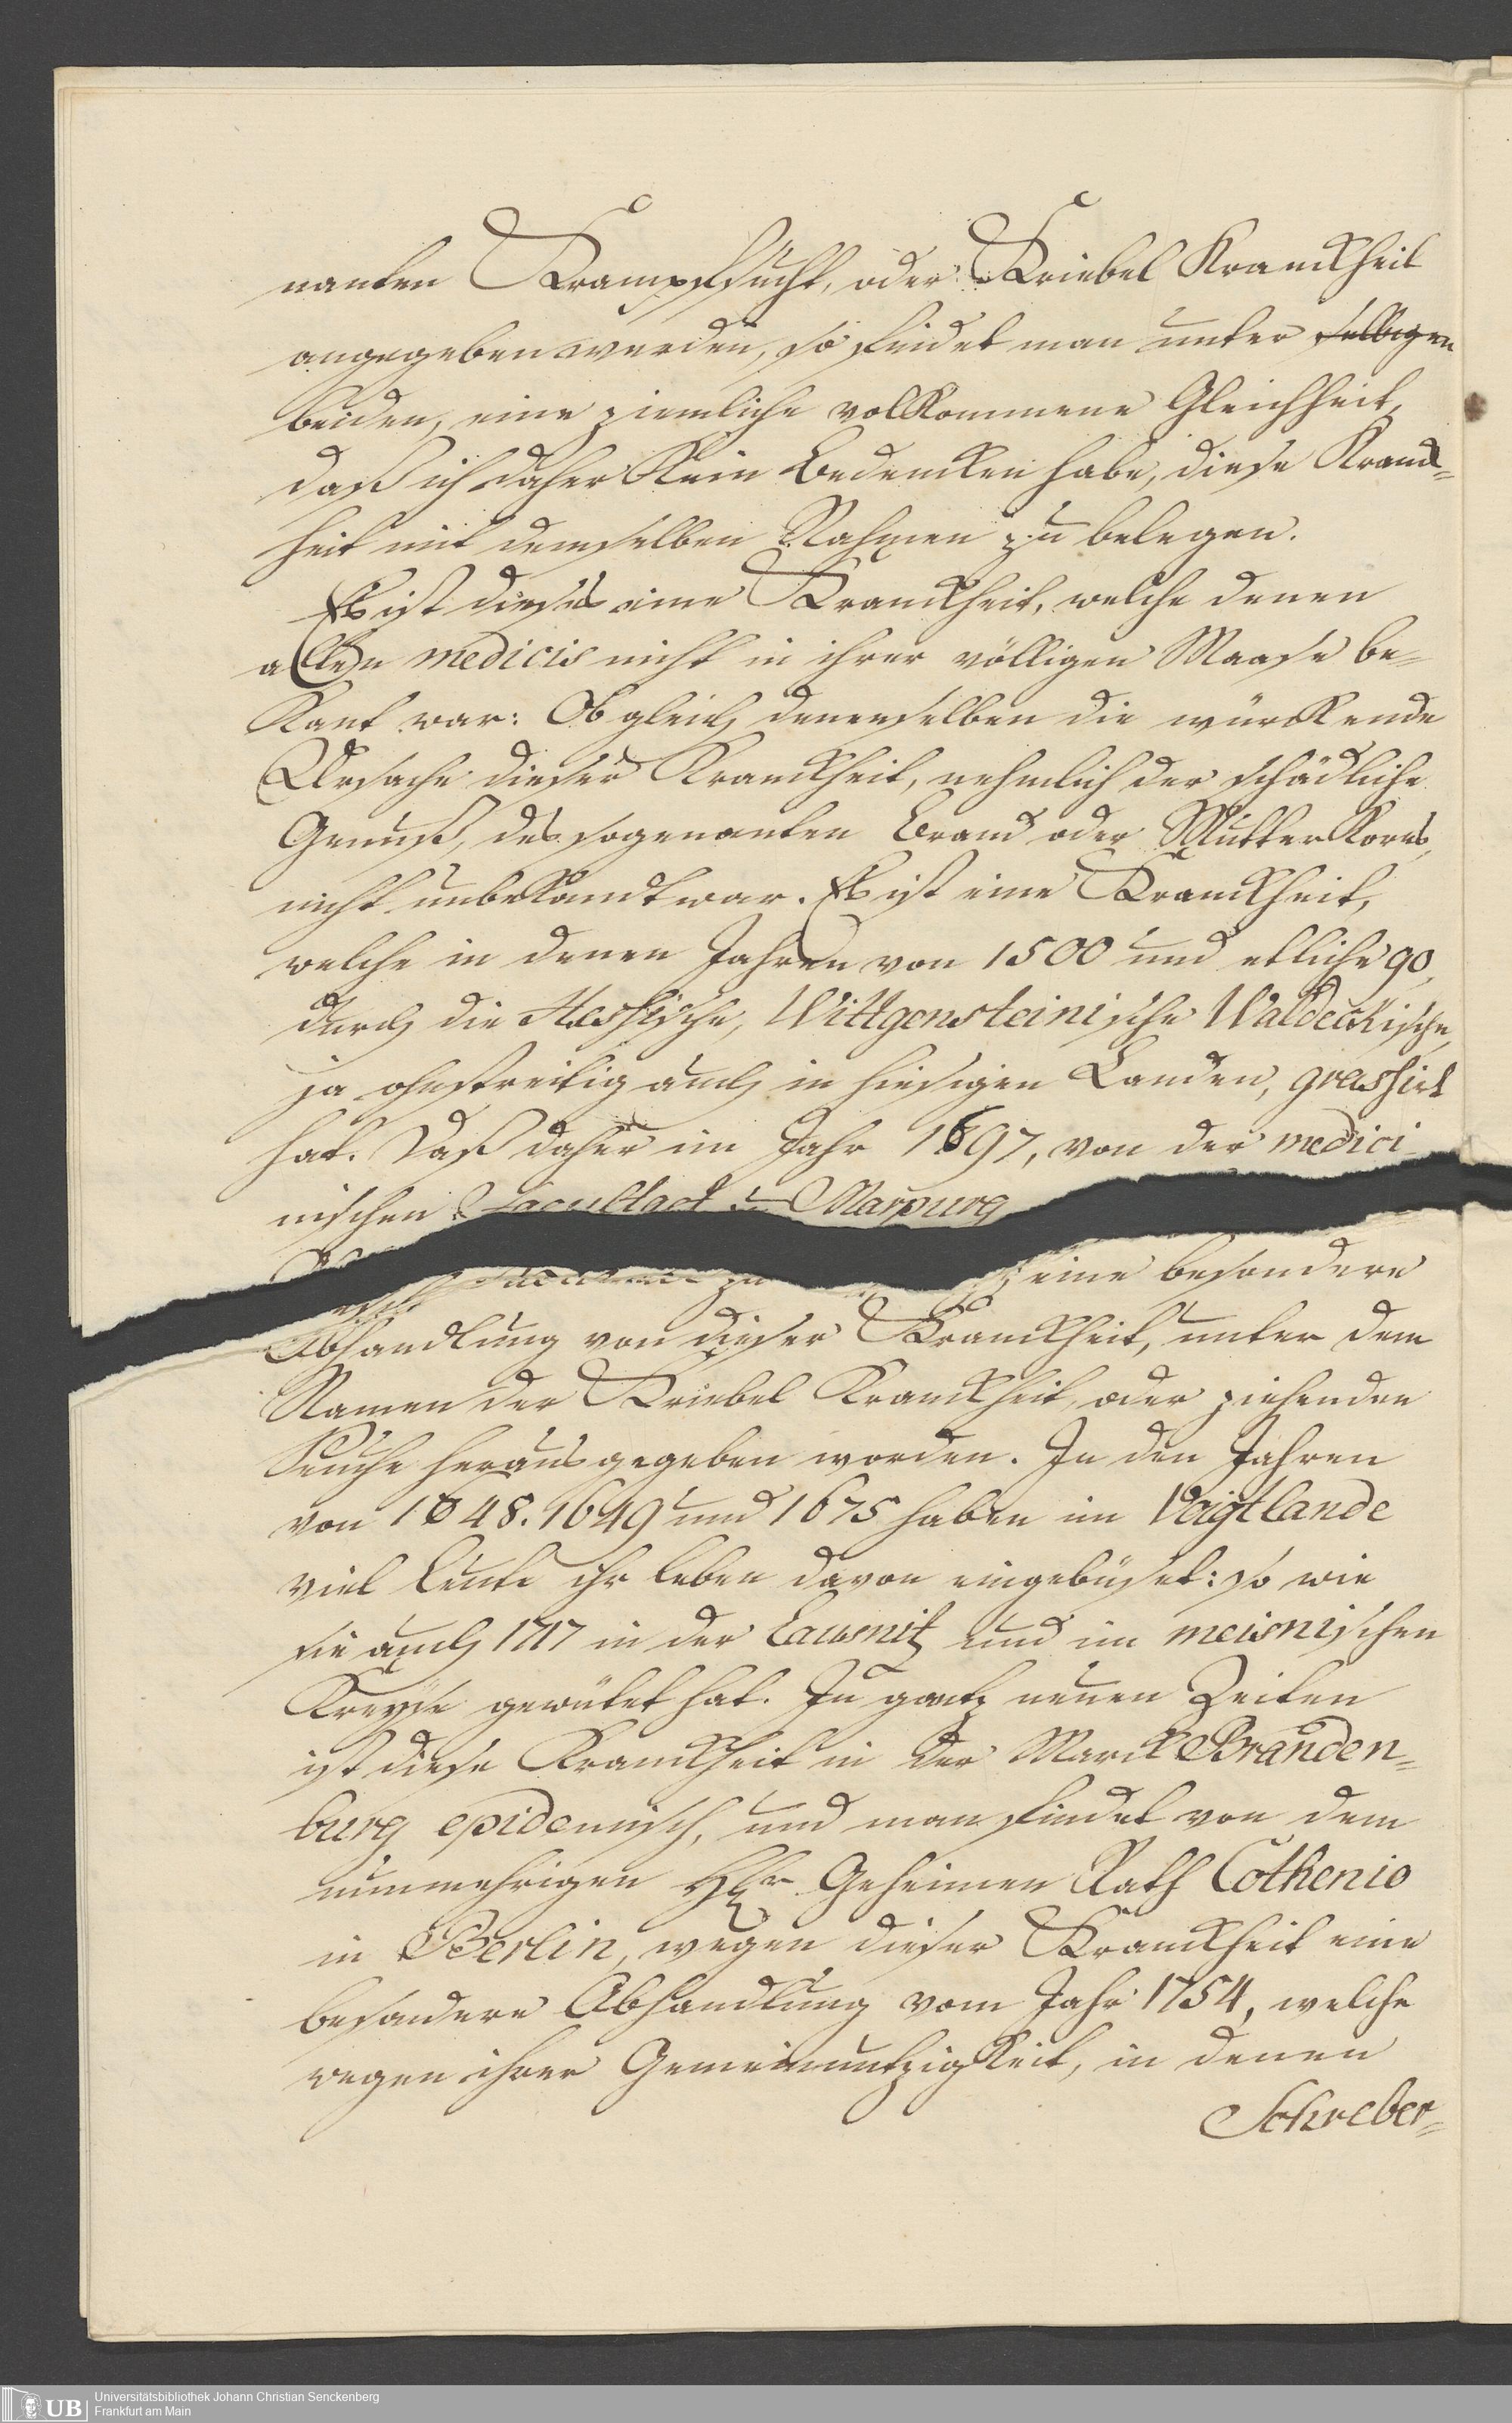 nanten Krampfsucht, oder Kriebel Kranckheit
angegeben werden, so findet man unter selbigen
beiden, eine ziemliche vollkommene Gleichheit,
daß ich daher kein Bedencken habe, diese Kranck=
heit mit demselben Nahmen zu belegen.
Es ist dieses eine Kranckheit, welche denen
alten medicis nicht in ihrer völligen Maase be=
kant war: Ob gleich denenselben die würckende
Ursache dieser Kranckheit, nehmlich der schädliche
Genuß, des sogenanten Brand oder Mutterkorns,
nicht unbekandt war. Es ist eine Kranckheit,
welche in denen Jahren von 1500 und etliche 90,
durch die Hessische, Wittgensteinische Waldeckische,
ja ohnstreitig auch in hiesigen Landen, grassirt
hat. Daß daher im Jahr 1597, von der medici
nischen Facultaet Marpurg
eine besondere
Abhandlung von dieser Kranckheit, unter dem
Namen der Kriebel Kranckheit, oder ziehenden
Seuche herausgegeben worden. In den Jahren
von 1648. 1649 und 1675 haben im Voigtlande
viel Leute ihr Leben davon eingebüset: so wie
sie auch 1717 in der Lausnitz und im meisnischen
Kreyse gewütet hat. In gantz neuen Zeiten
ist diese Kranckheit in der Marck Branden=
burg epidemisch, und man findet von dem
nunmehrigen Hr Geheimen Rath Cothenio
in Berlin, wegen dieser Kranckheit eine
besondere Abhandlung vom Jahr 1754, welche
wegen ihrer Gemeinnutzigkeit, in denen
Schreber=
UB Universitätsbibliothek Johann Christian Senckenberg
Frankfurt am Main